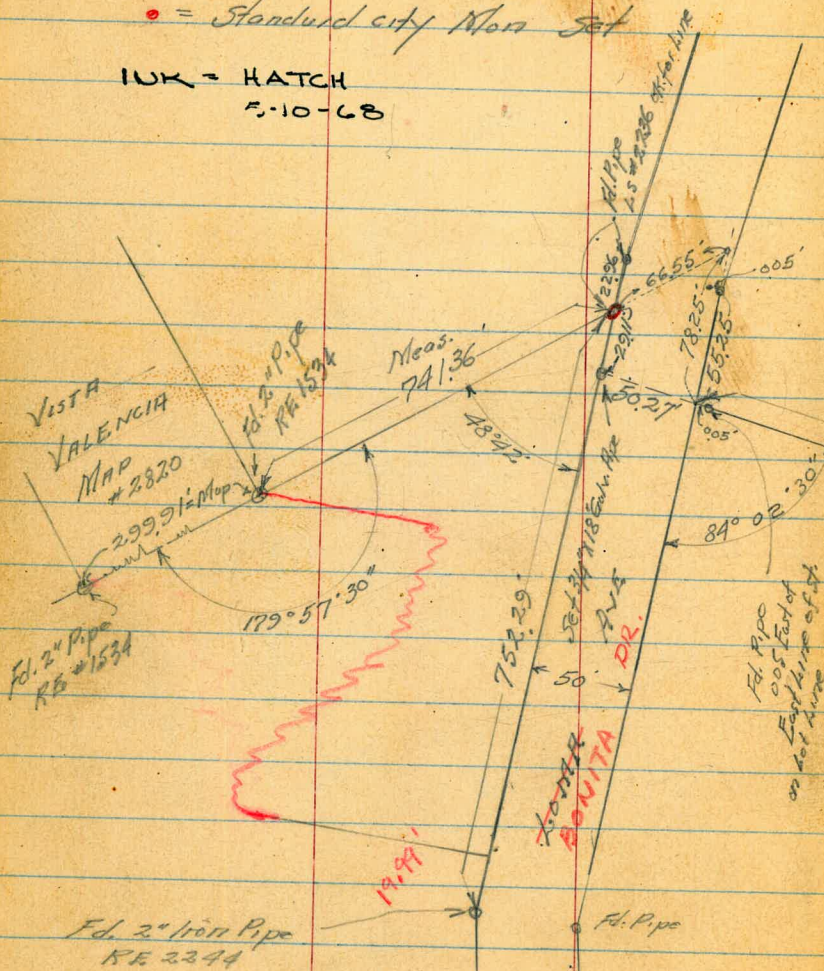 = Standurd city Mon Set
INK = HATCH
5-10-68
Fd. Pipe
LS # 2236
for Line
22.96
66.55'
.005'
78.25'
55.25
29.15
50.27'
.005'
Meas.
741.36'
48°42'
Fd. 2" Pipe
RE 1534
VISTA
VALENCIA
MAP
# 2820
299.91' = Map
179°57'30"
Fd. 2" Pipe
RE #1534
752.29'
Set 3/4" X 18" Galv. Pipe
AVE
DR.
50'
84° 02' 30"
Fd. Pipe
005 East of
East Line of St.
on Lot Line
LOMA
BONITA
19.99'
Fd. 2" Iron Pipe
RE 2244
Fd. Pipe